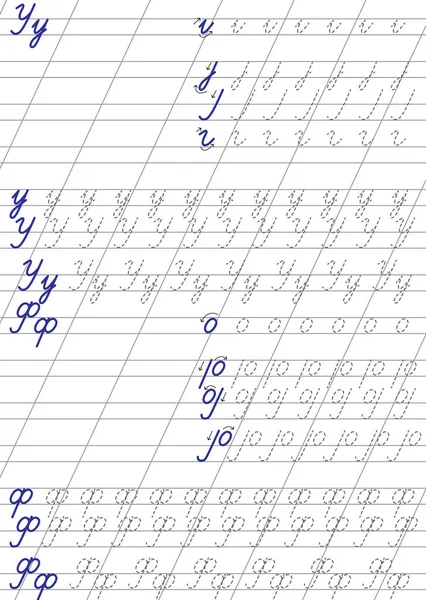 Уу
у у у у у у у у у у у у
У У У У У У У У У У У У
Уу Уу Уу Уу Уу Уу Уу Уу
Фф
ф ф ф ф ф ф ф ф ф ф ф ф
Ф Ф Ф Ф Ф Ф Ф Ф Ф Ф Ф Ф
Фф Фф Фф Фф Фф Фф Фф